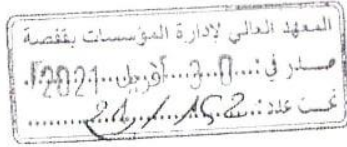 المعهد العالي لإدارة المؤسسات بقفصة
صادر في: 30 أفريل 2021
تحت عدد: 21/152